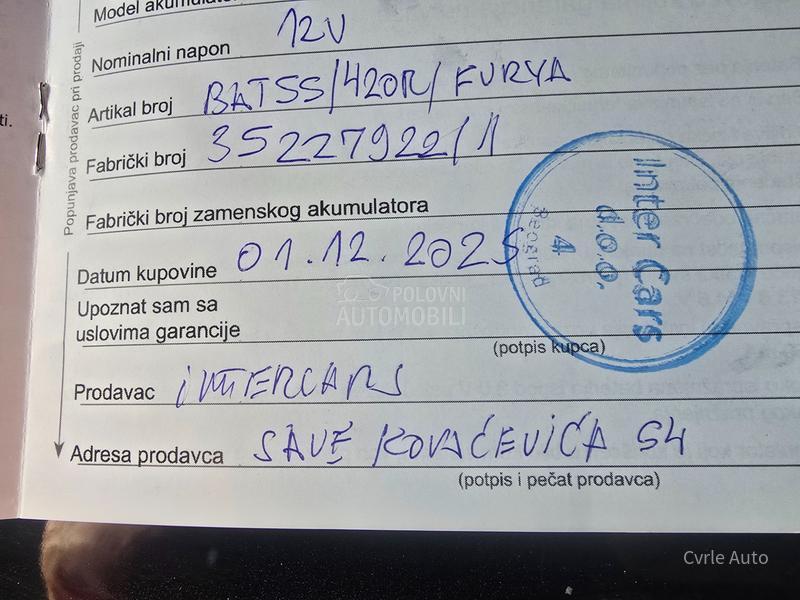 ti.
Popunjava prodavac pri prodaji
Model akumulator
Nominalni napon 12V
Artikal broj BAT55/420R/FURYA
Fabrički broj 35227922/1
Fabrički broj zamenskog akumulatora
Datum kupovine 01.12.2025
Upoznat sam sa
uslovima garancije
(potpis kupca)
Prodavac INTERCARS
Adresa prodavca SAVE KOVAČEVIĆA 54
(potpis i pečat prodavca)
Inter Cars
d.o.o.
4
Beograd
POLOVNI
AUTOMOBILI
Cvrle Auto